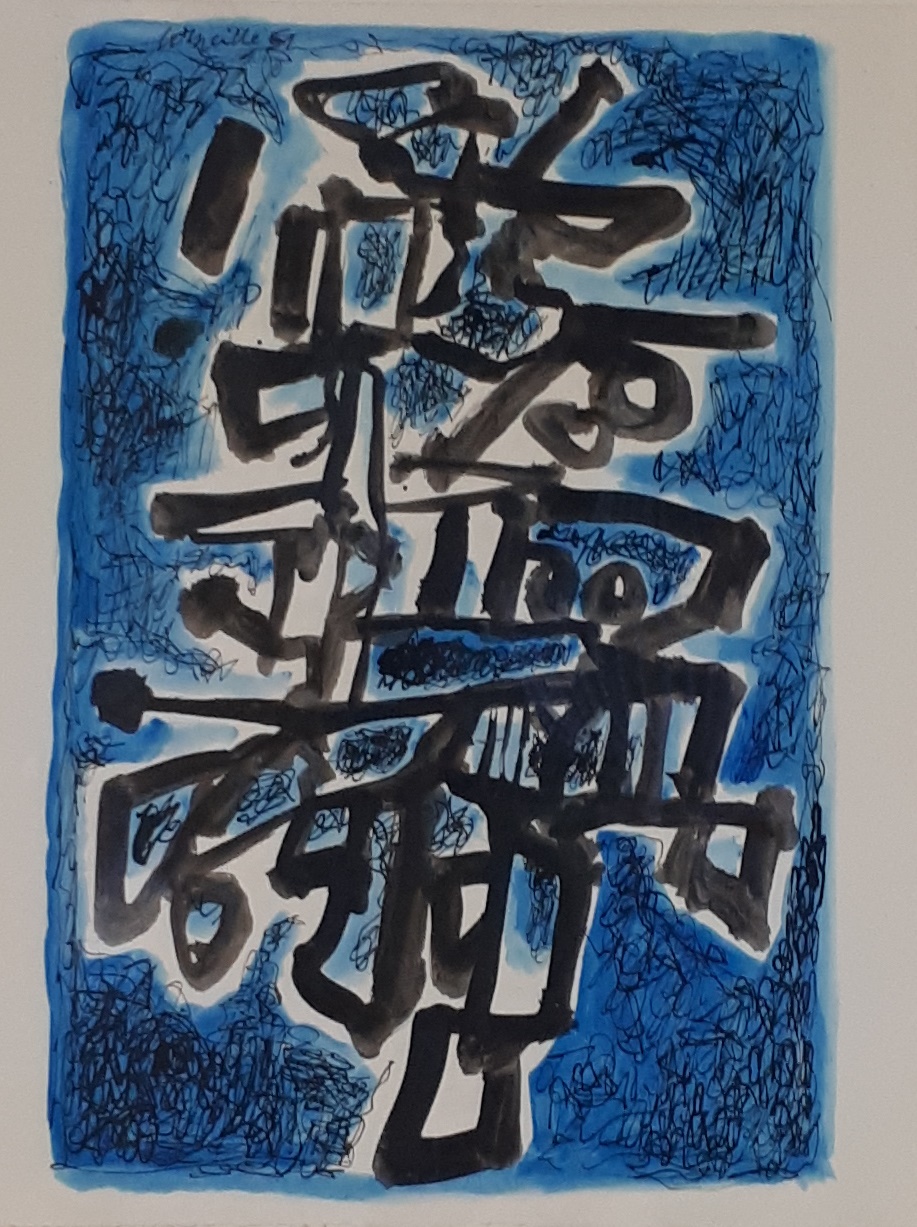 Corneille 61